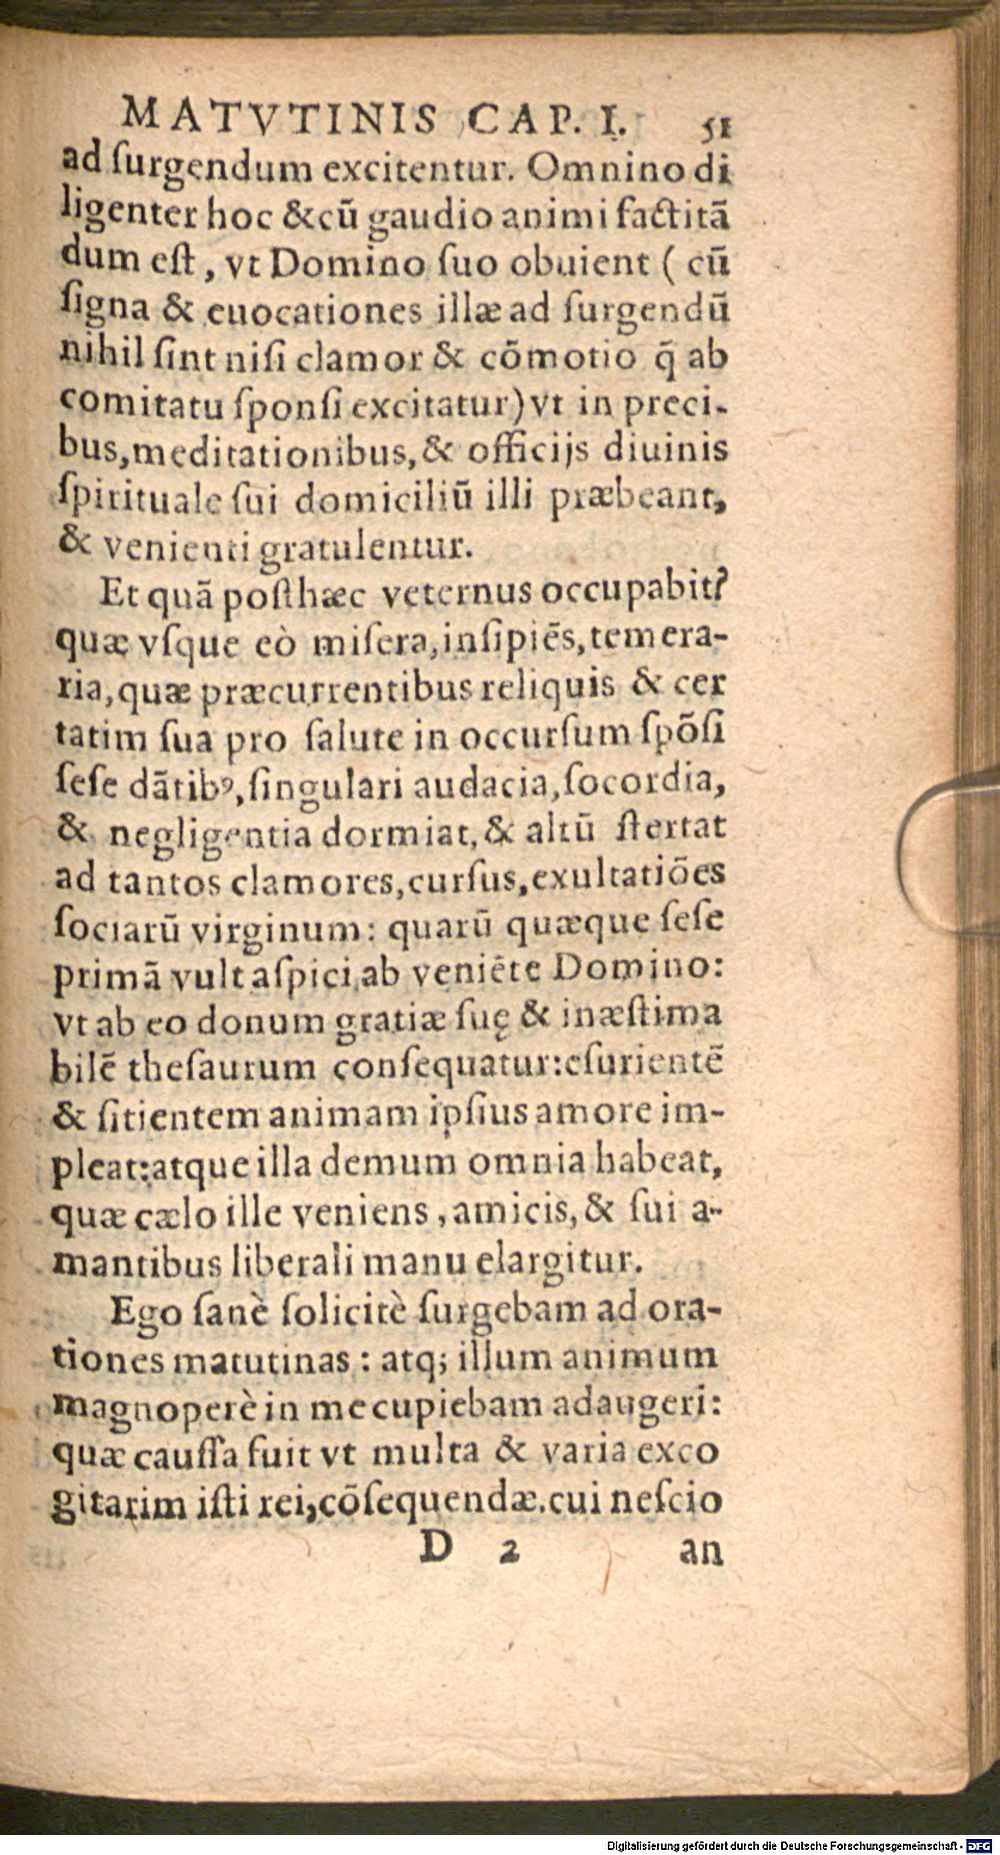 MATVTINIS CAP. I. 51
ad ſurgendum excitentur. Omnino di
ligenter hoc &cũ gaudio animi factitã
dum eſt, vt Domino ſuo obuient ( cũ
ſigna & euocationes illæ ad ſurgendũ
nihil ſint niſi clamor & cõmotio q̃ ab
comitatu ſponſi excitatur) vt in preci-
bus, meditationibus, & officijs diuinis
ſpirituale ſui domiciliũ illi præbeant,
& venienti gratulentur.
Et quã poſthæc veternus occupabit?
quæ vſque eò miſera, inſipiẽs, temera-
ria, quæ præcurrentibus reliquis & cer
tatim ſua pro ſalute in occurſum ſpõſi
ſeſe dãtibꝰ, ſingulari audacia, ſocordia,
& negligentia dormiat, & altũ ſtertat
ad tantos clamores, curſus, exultatiões
ſociarũ virginum: quarũ quæque ſeſe
primã vult aſpici ab veniẽte Domino:
vt ab eo donum gratiæ ſuę & inæſtima
bilẽ theſaurum conſequatur: eſurientẽ
& ſitientem animam ipſius amore im-
pleat: atque illa demum omnia habeat,
quæ cælo ille veniens, amicis, & ſui a-
mantibus liberali manu elargitur.
Ego ſanè ſolicitè ſurgebam ad ora-
tiones matutinas: atq; illum animum
magnoperè in me cupiebam adaugeri:
quæ cauſſa fuit vt multa & varia exco
gitarim iſti rei, cõſequendæ. cui neſcio
D 2 an
Digitalisierung gefördert durch die Deutsche Forschungsgemeinschaft - DFG